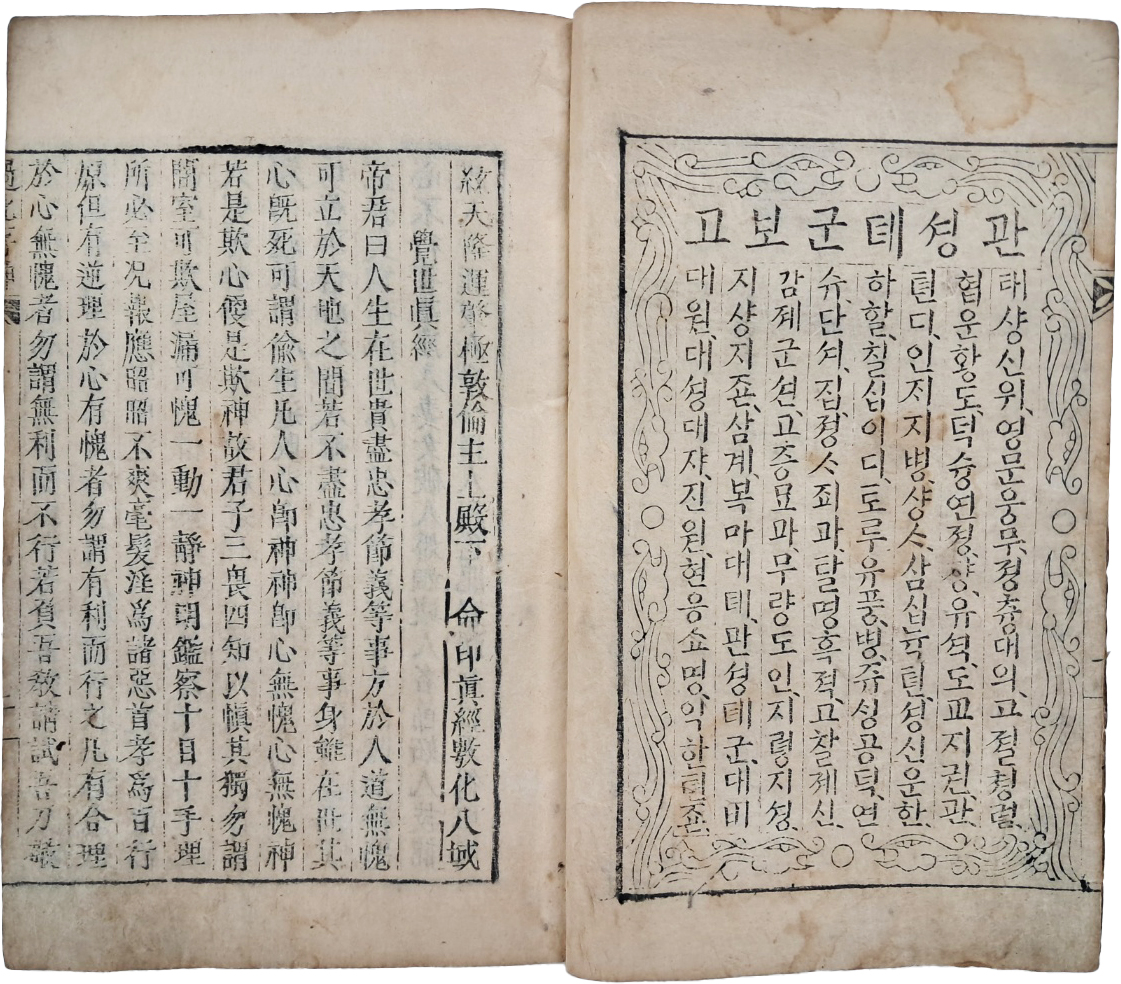 관셩테군보고
태샹신위,영문웅무,졍츙대의,고졀쳥렴,
협운황도,덕슝연졍,샹유셕,도교지권,관
텬디,인지지병,샹스,삼십뉵텬,셩신운한,
하할,칠십이디,토루유풍,병쥬싱공덕,연
슈,단셔,집졍스죄과,탈명흑젹,고찰졔신
감졔군션,고층묘과,무량도인,지령지셩,
지샹지존,삼계,복마대테,관셩테군,대비
대원,대셩대쟈,진원,현응쇼명,익한텬존,
天隆運肇極敦倫主上殿下 命印眞經敷化八域
覺世眞經
帝君曰人生在世貴盡忠孝節義等事方於人道無愧
可立於天地之間若不盡忠孝節義等事身雖在世其
心旣死可謂偸生凡人心卽神神卽心無愧心無愧神
若是欺心便是欺神故君子三畏四知以愼其獨勿謂
闇室可欺屋漏可愧一動一靜神明鑑察十目十手理
所必至况報應昭昭不爽毫髮淫爲諸惡首孝爲百行
原但有逆理於心有愧者勿謂有利而行之凡有合理
於心無愧者勿謂無利而不行若負吾敎請試吾刀敬